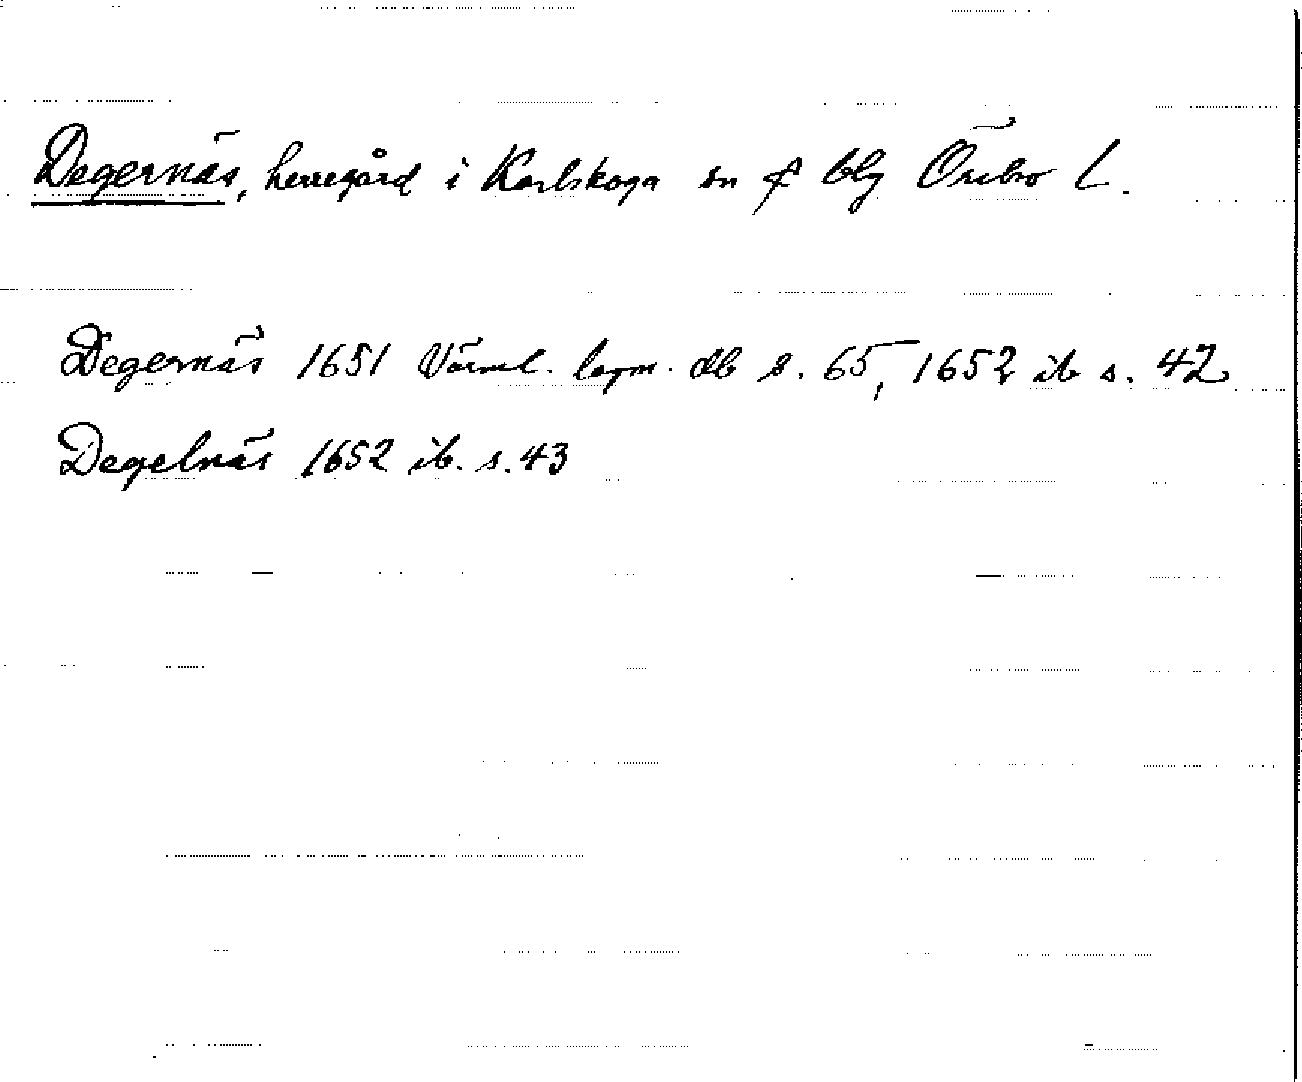 Degernäs, herregård i Karlskoga sn & blg Örebro L.
Degernäs 1651 Värml. lagm. db s. 65, 1652 ib s. 42
Degelnäs 1652 ib. s. 43